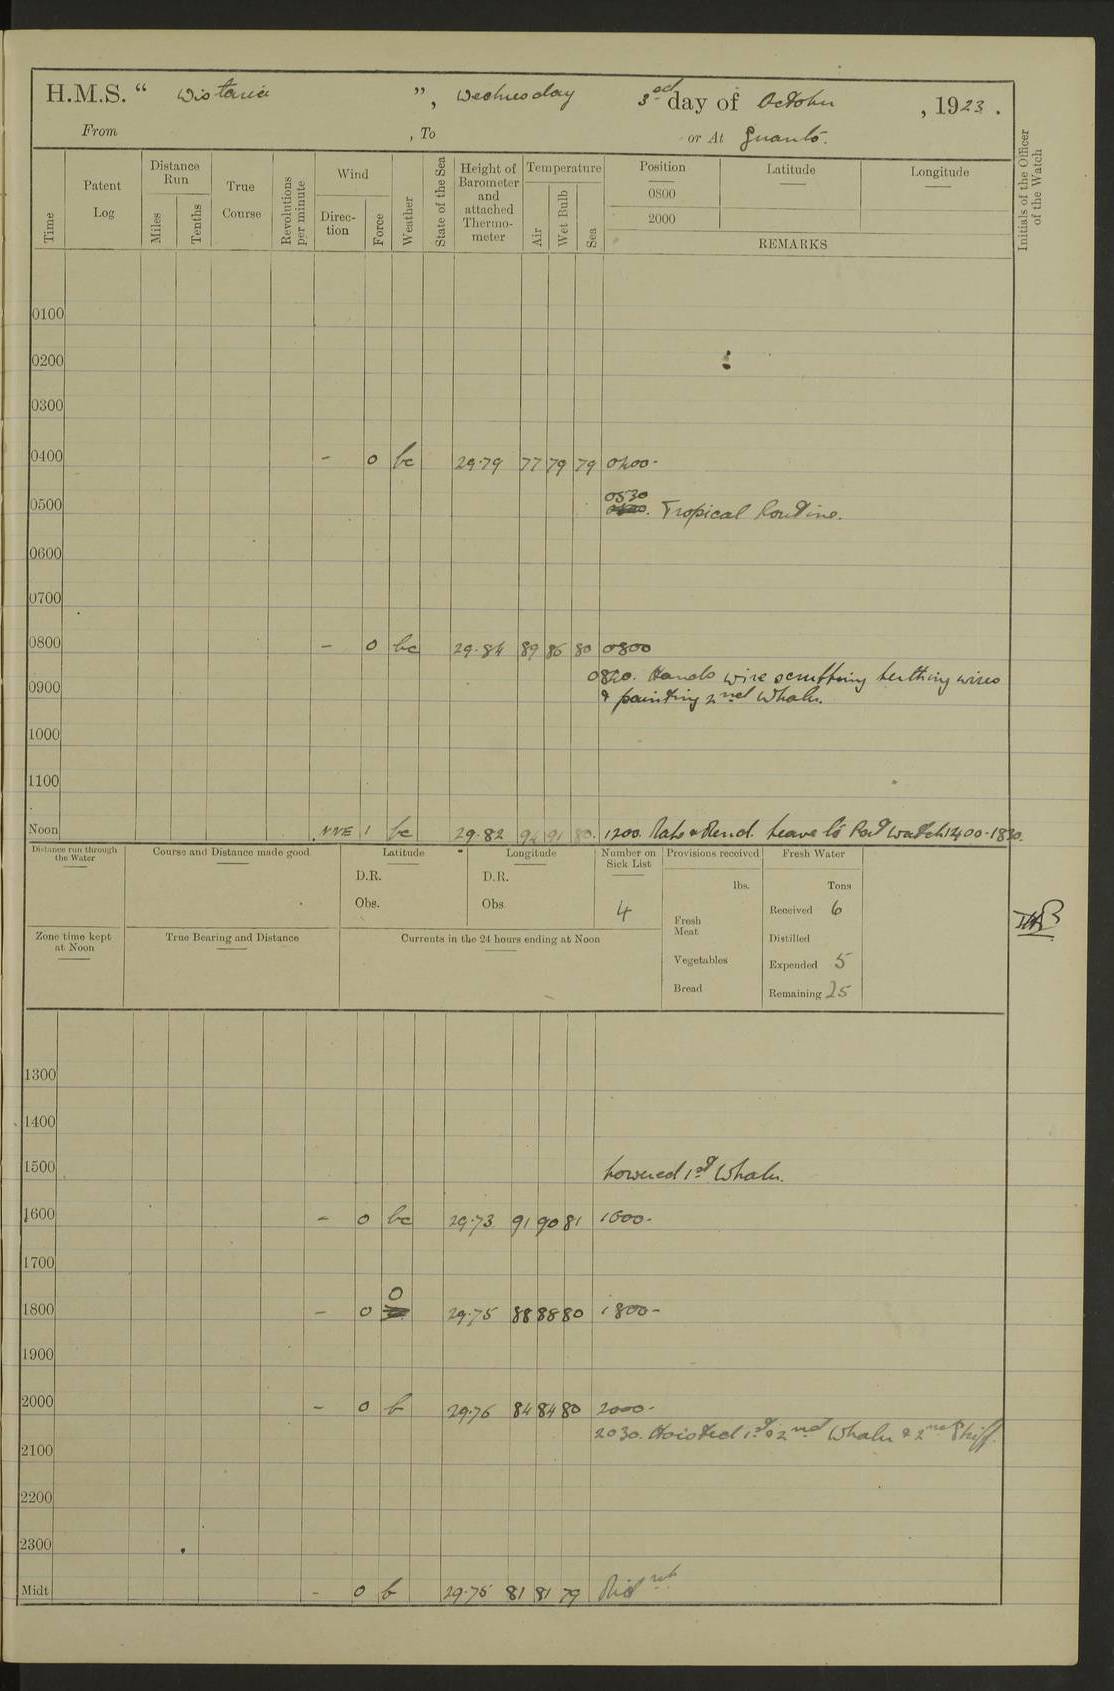 H.M.S. " Wistaria ", Wednesday 3rd day of October, 1923.
From , To or At Guanta.
Time
Patent Log
Distance Run
Miles
Tenths
True Course
Revolutions per minute
Wind
Direc-tion
Force
Weather
State of the Sea
Height of Barometer and attached Thermo-meter
Temperature
Air
Wet Bulb
Sea
Position
0800
2000
Latitude
Longitude
REMARKS
Initials of the Officer of the Watch
0100
0200
0300
0400 - 0 bc 29.79 77 79 79 0400.
0530
0500 Tropical Routine.
0600
0700
0800 - 0 bc 29.84 89 86 80 0800
0820. Hands wire scrubbing berthing wires
0900 & painting 2nd Whaler.
1000
1100
Noon NNE 1 bc 29.82 94 91 80. 1200. Leave to Port Watch 1400-1830.
Distance run through the Water
Course and Distance made good
Latitude
D.R.
Obs.
Longitude
D.R.
Obs
Number on Sick List
4
Provisions received
lbs.
Fresh Meat
Vegetables
Bread
Fresh Water
Tons
Received 6
Distilled
Expended 5
Remaining 25
Zone time kept at Noon
True Bearing and Distance
Currents in the 24 hours ending at Noon
1300
1400
1500 Lowered 1st Whaler.
1600 - 0 bc 29.73 91 90 81 1600-
1700
0
1800 - 0 29.75 88 88 80 1800-
1900
2000 - 0 b 29.76 84 84 80 2000-
2030. Hoisted 1st & 2nd Whaler & 2nd Skiff.
2100
2200
2300
Midt - 0 b 29.75 81 81 79 Mid